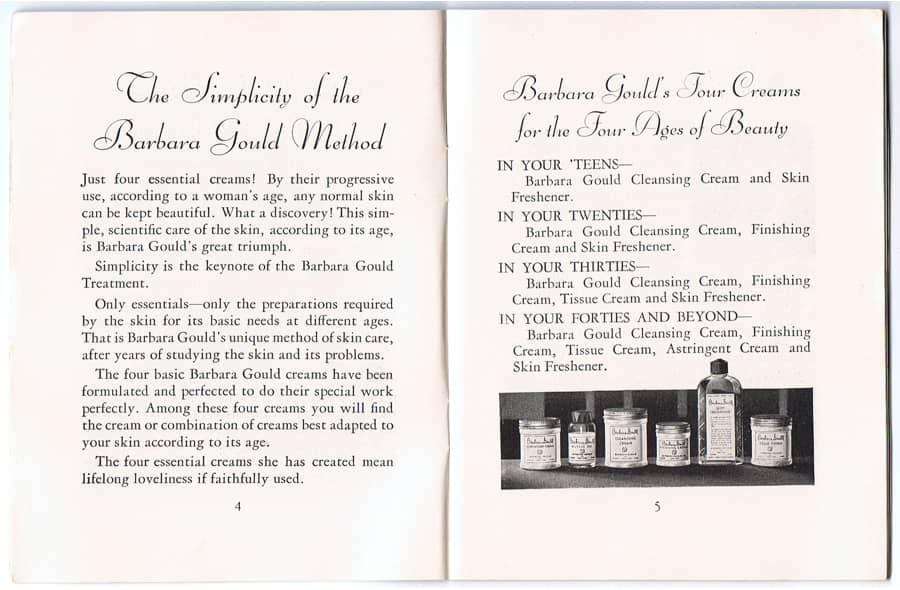 The Simplicity of the
Barbara Gould Method
Just four essential creams! By their progressive
use, according to a woman's age, any normal skin
can be kept beautiful. What a discovery! This sim-
ple, scientific care of the skin, according to its age,
is Barbara Gould's great triumph.
Simplicity is the keynote of the Barbara Gould
Treatment.
Only essentials—only the preparations required
by the skin for its basic needs at different ages.
That is Barbara Gould's unique method of skin care,
after years of studying the skin and its problems.
The four basic Barbara Gould creams have been
formulated and perfected to do their special work
perfectly. Among these four creams you will find
the cream or combination of creams best adapted to
your skin according to its age.
The four essential creams she has created mean
lifelong loveliness if faithfully used.
4
Barbara Gould's Four Creams
for the Four Ages of Beauty
IN YOUR 'TEENS—
Barbara Gould Cleansing Cream and Skin
Freshener.
IN YOUR TWENTIES—
Barbara Gould Cleansing Cream, Finishing
Cream and Skin Freshener.
IN YOUR THIRTIES—
Barbara Gould Cleansing Cream, Finishing
Cream, Tissue Cream and Skin Freshener.
IN YOUR FORTIES AND BEYOND—
Barbara Gould Cleansing Cream, Finishing
Cream, Tissue Cream, Astringent Cream and
Skin Freshener.
Barbara Gould
CLEANSING
CREAM
Barbara Gould
SKIN
FRESHENER
5